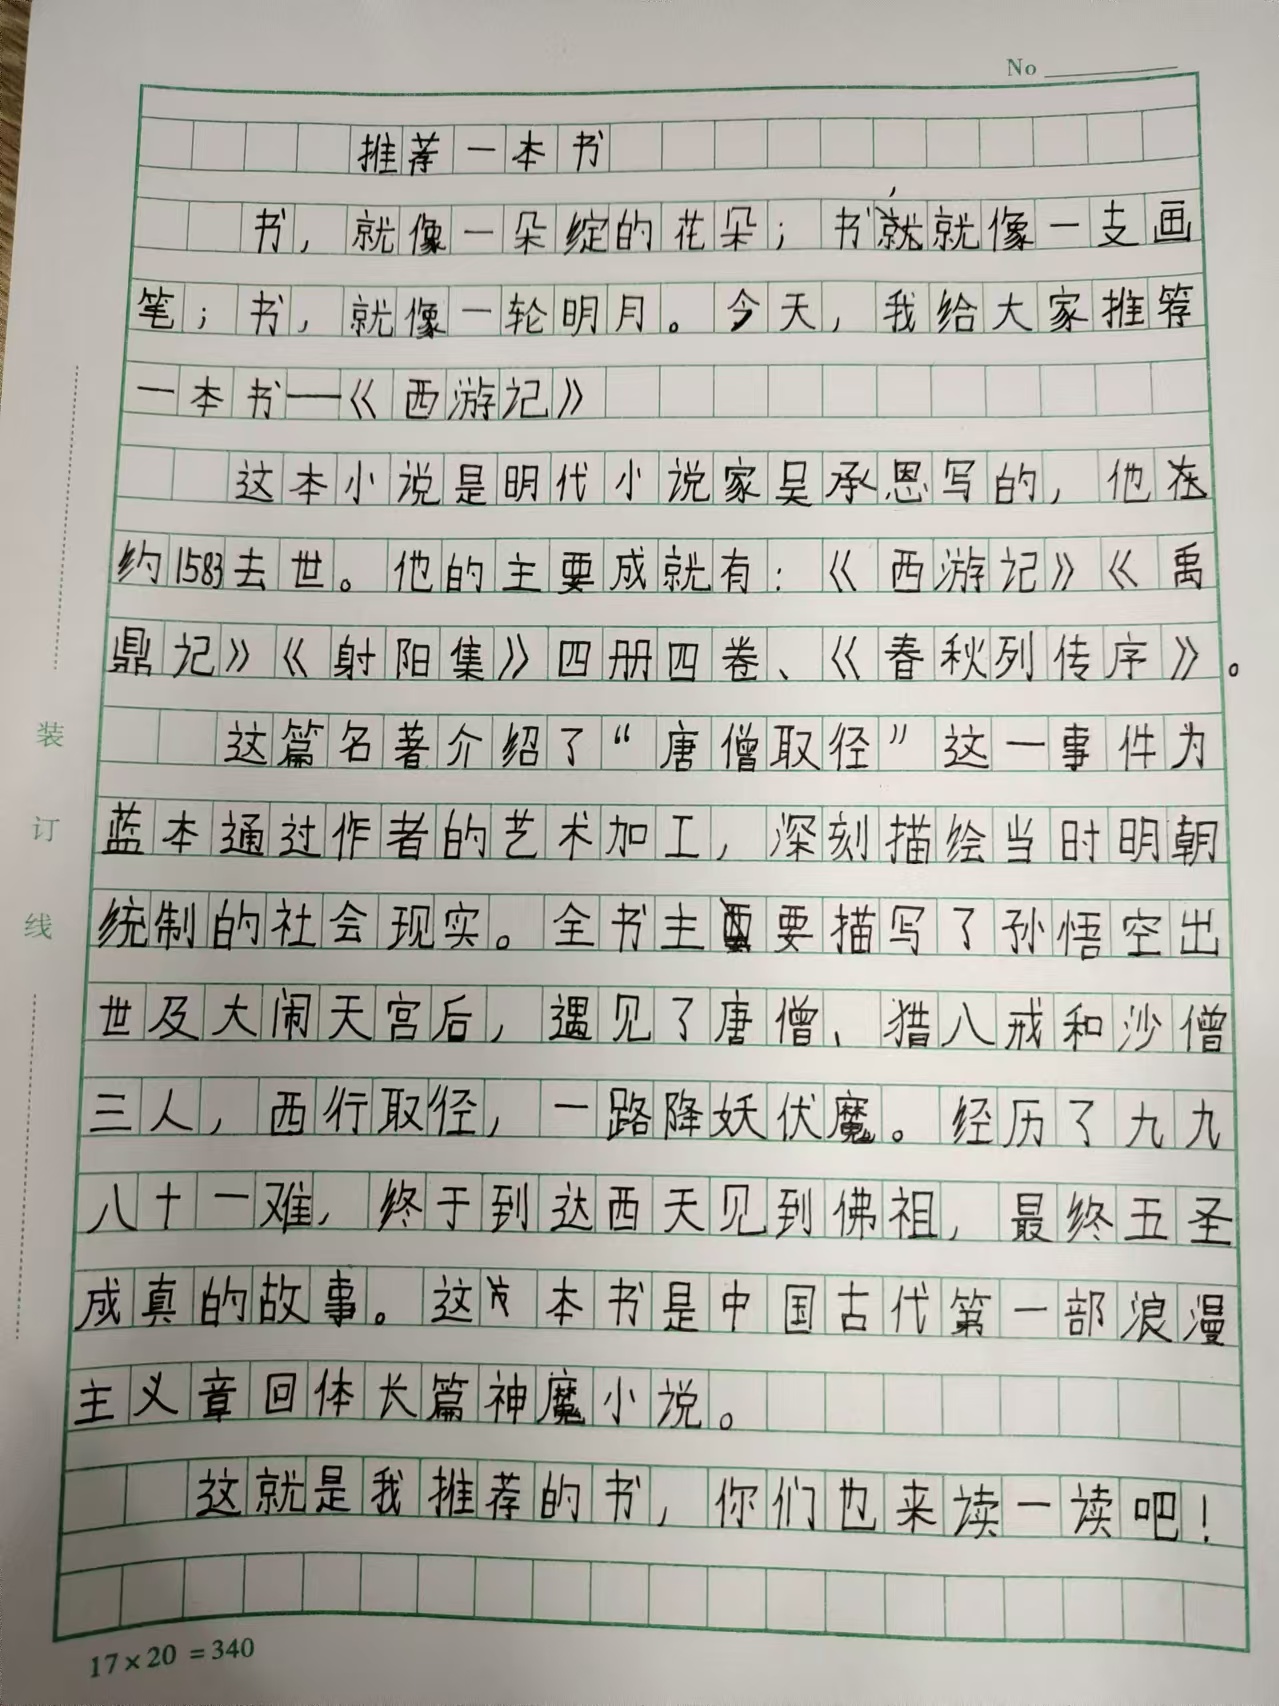 No
推荐一本书
书，就像一朵绽的花朵；书，就就像一支画
笔；书，就像一轮明月。今天，我给大家推荐
一本书——《西游记》
这本小说是明代小说家吴承恩写的，他在
约1583去世。他的主要成就有：《西游记》《禹
鼎记》《射阳集》四册四卷、《春秋列传序》。
这篇名著介绍了“唐僧取径”这一事件为
蓝本通过作者的艺术加工，深刻描绘当时明朝
统制的社会现实。全书主要描写了孙悟空出
世及大闹天宫后，遇见了唐僧、猎八戒和沙僧
三人，西行取径，一路降妖伏魔。经历了九九
八十一难，终于到达西天见到佛祖，最终五圣
成真的故事。这本书是中国古代第一部浪漫
主义章回体长篇神魔小说。
这就是我推荐的书，你们也来读一读吧！
装
订
线
17×20=340